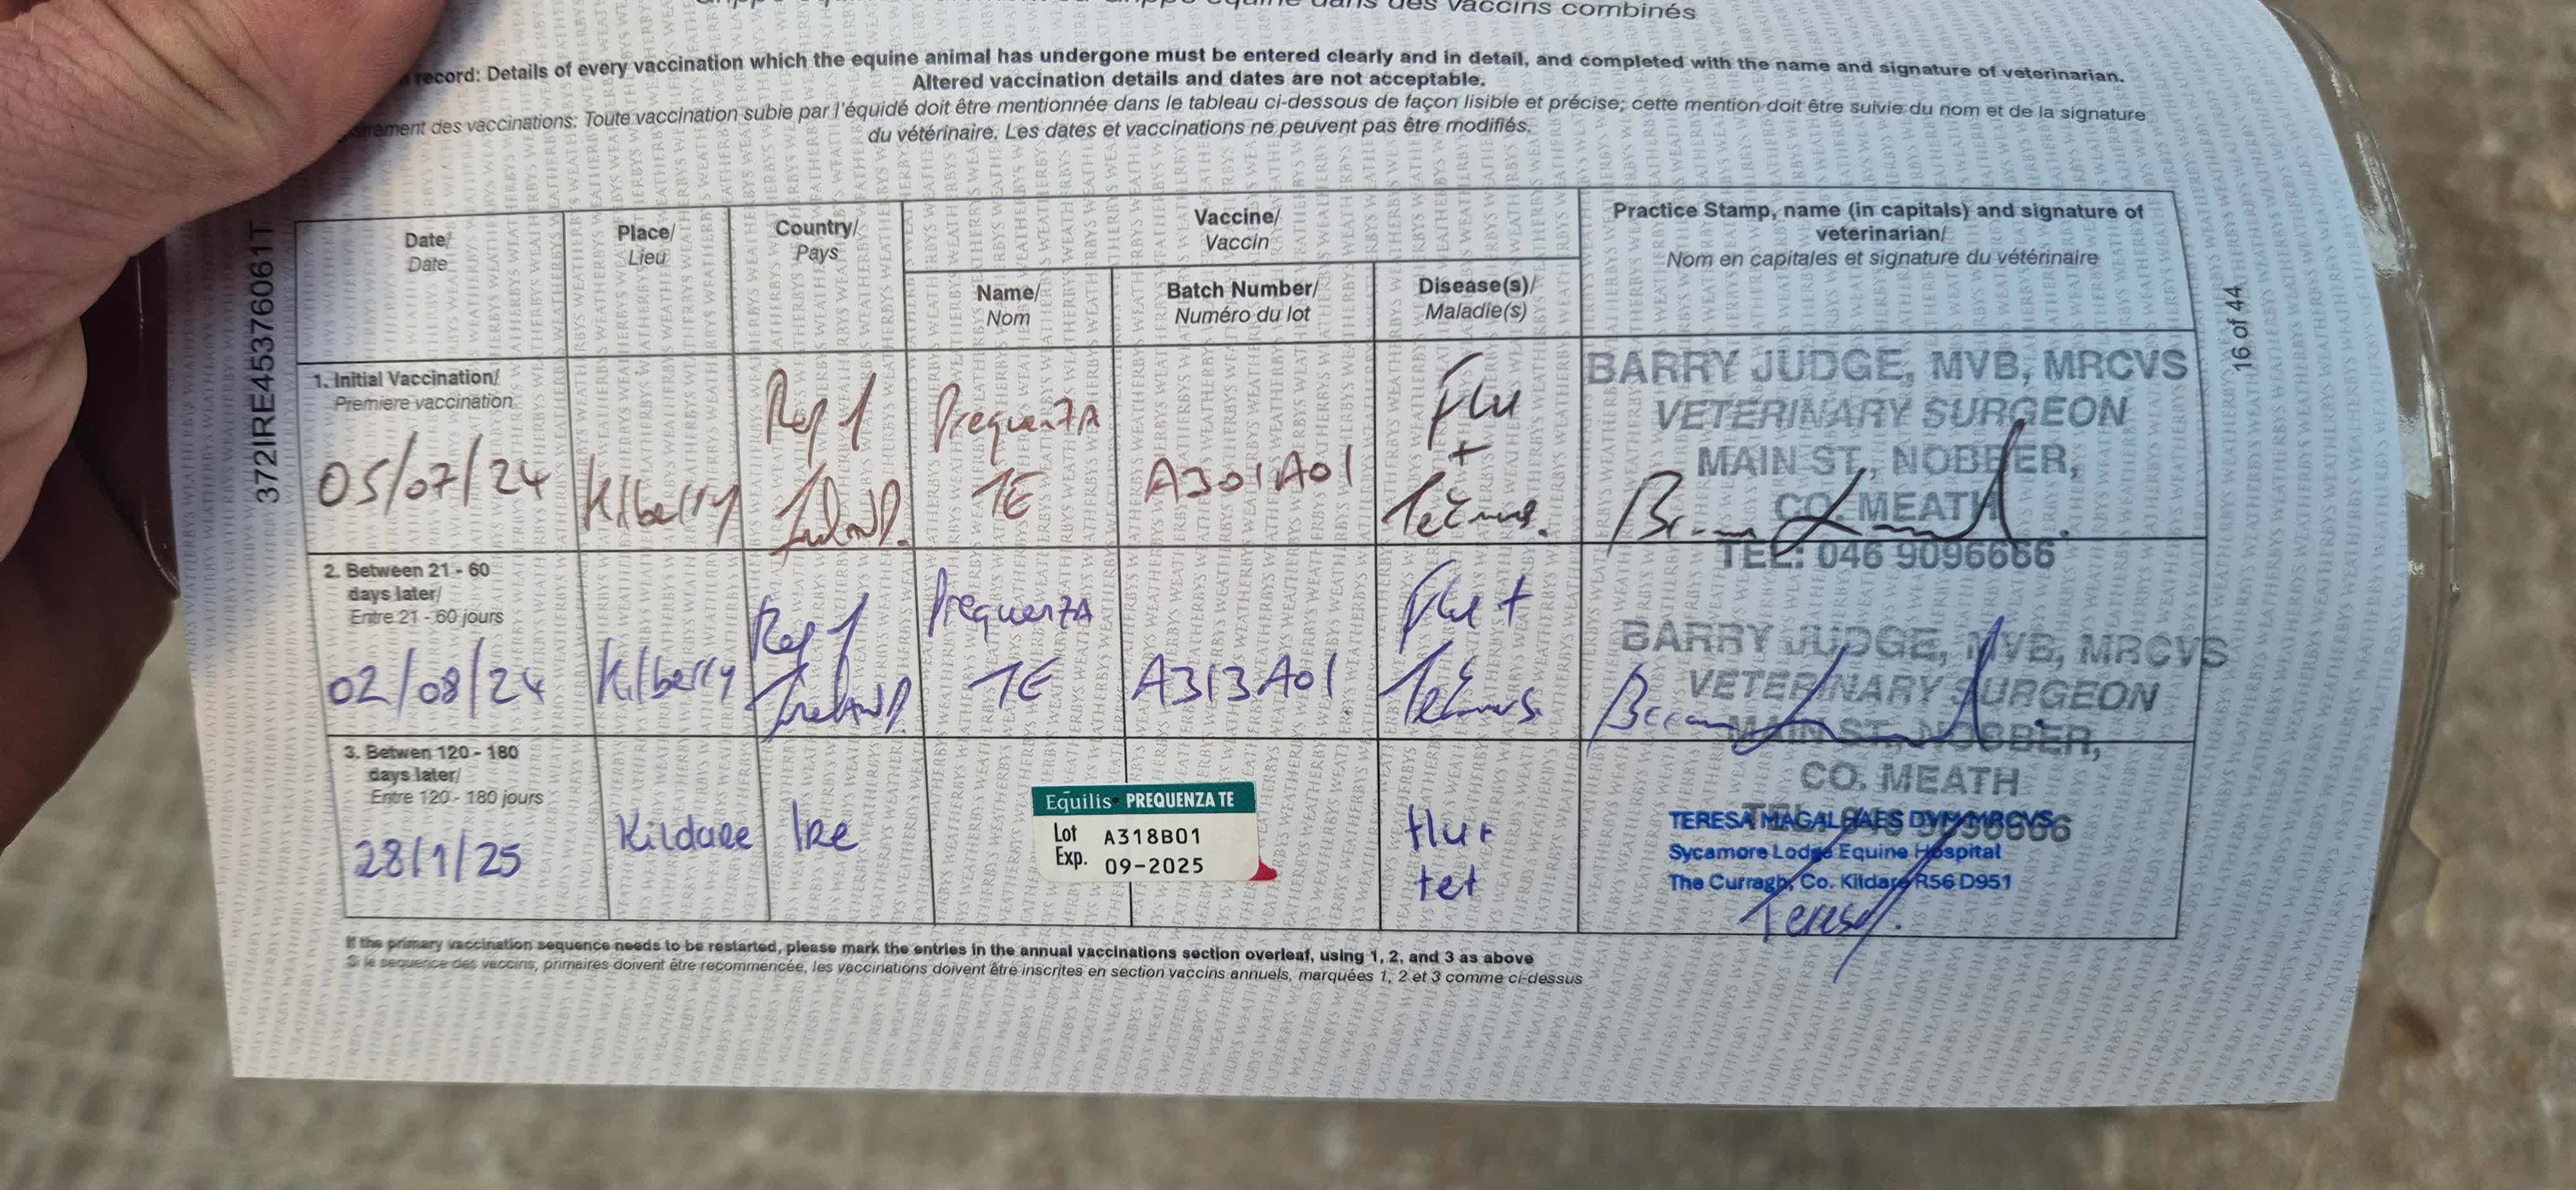 dans des vaccins combinés
record: Details of every vaccination which the equine animal has undergone must be entered clearly and in detail, and completed with the name and signature of veterinarian.
Altered vaccination details and dates are not acceptable.
des vaccinations: Toute vaccination subie par l'équidé doit être mentionnée dans le tableau ci-dessous de façon lisible et précise; cette mention doit être suivie du nom et de la signature
du vétérinaire. Les dates et vaccinations ne peuvent pas être modifiés.
372IRE45376061T
16 of 44
Date/
Date
Place/
Lieu
Country/
Pays
Vaccine/
Vaccin
Name/
Nom
Batch Number/
Numéro du lot
Disease(s)/
Maladie(s)
Practice Stamp, name (in capitals) and signature of
veterinarian/
Nom en capitales et signature du vétérinaire
1. Initial Vaccination/
Premiere vaccination
05/07/24
Kilberry
Rep f
Ireland.
PrequenzA
TE
A301A01
Flu
+
Tetnus.
BARRY JUDGE, MVB, MRCVS
VETERINARY SURGEON
MAIN ST, NOBBER,
CO. MEATH
TEL: 046 9096666
2. Between 21 - 60
days later/
Entre 21 - 60 jours
02/08/24
Kilberry
Rep f
Ireland.
PrequenzA
TE
A313A01
Flu +
Tetnus.
BARRY JUDGE, MVB, MRCVS
VETERINARY SURGEON
MAIN ST. NOBBER,
CO. MEATH
TEL: 046 9096666
3. Betwen 120 - 180
days later/
Entre 120 - 180 jours
28/1/25
Kildare
Ire
Equilis PREQUENZA TE
Lot A318B01
Exp. 09-2025
flu +
tet
TERESA MAGALHAES DVM MRCVS
Sycamore Lodge Equine Hospital
The Curragh, Co. Kildare R56 D951
Teresa
If the primary vaccination sequence needs to be restarted, please mark the entries in the annual vaccinations section overleaf, using 1, 2, and 3 as above
Si le sequence des vaccins, primaires doivent être recommencée, les vaccinations doivent être inscrites en section vaccins annuels, marquées 1, 2 et 3 comme ci-dessus